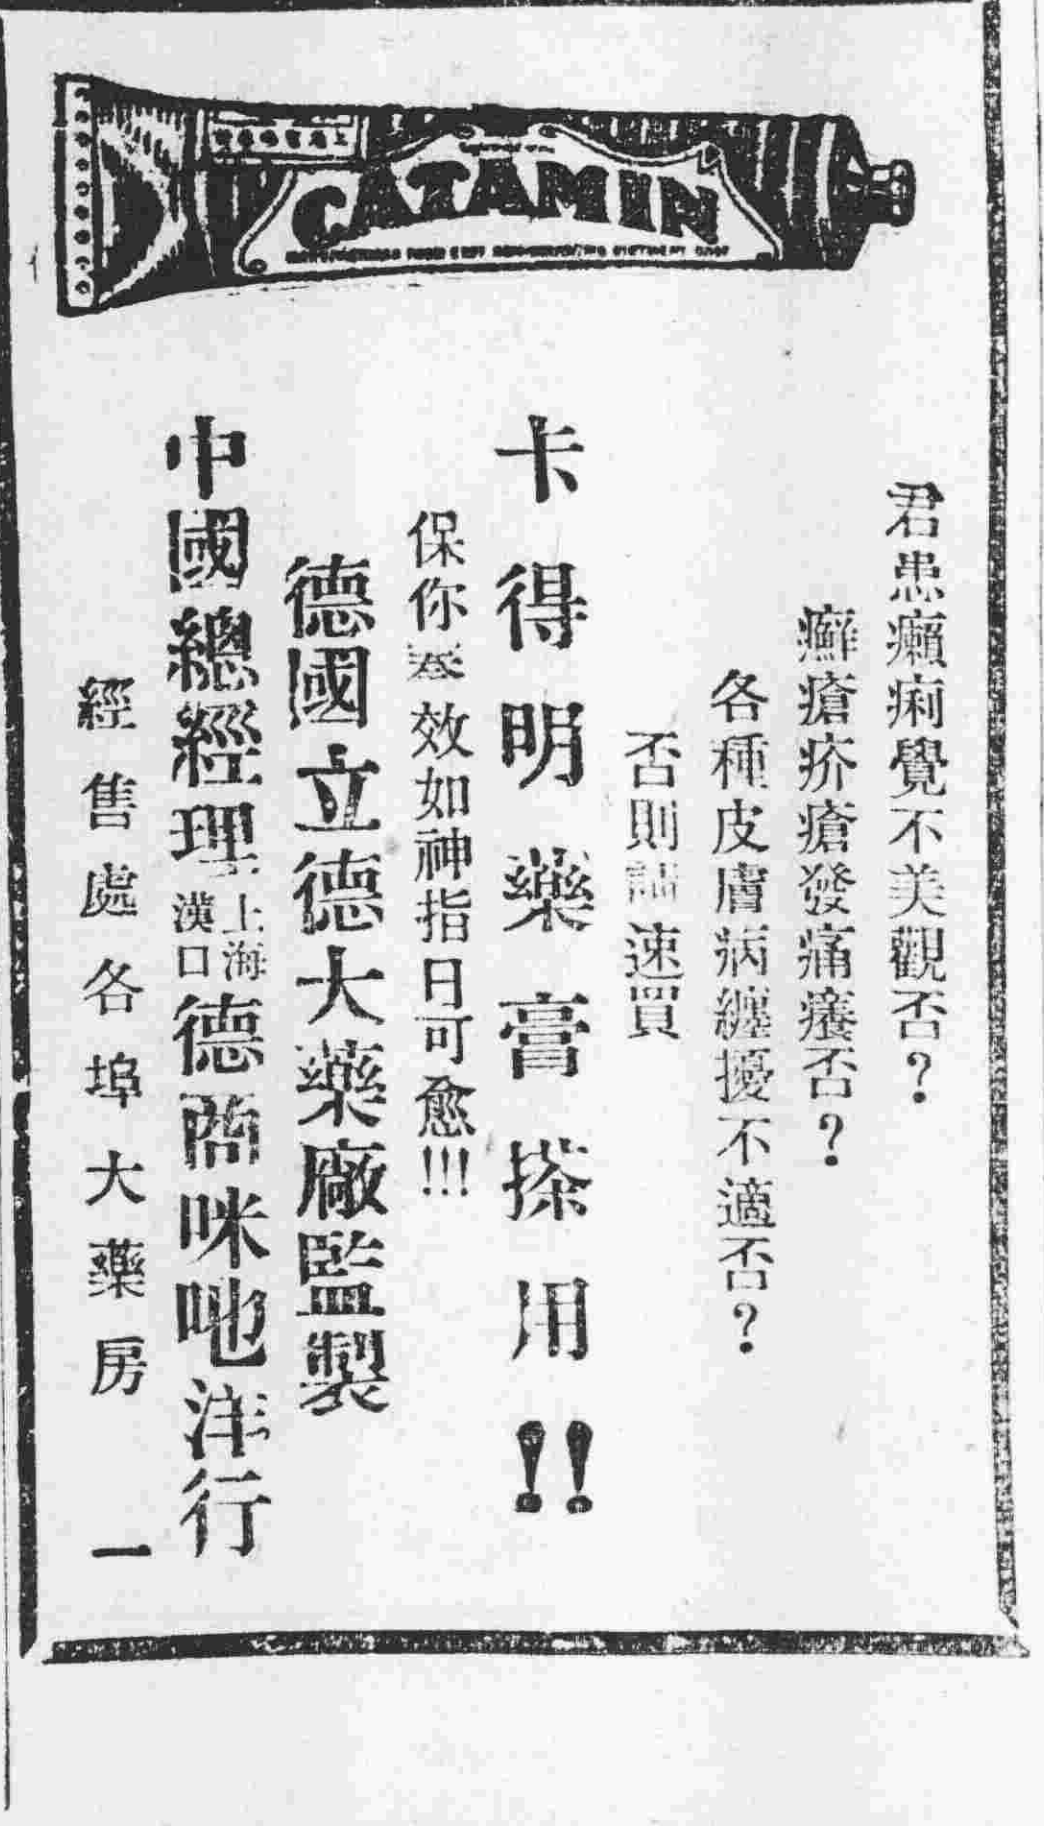 CATAMIN
君患癩痢覺不美觀否？
癬瘡疥瘡發痛癢否？
各種皮膚病纏擾不適否？
否則請速買
卡得明藥膏搽用！！
保你 效如神指日可愈!!!
德國立德大藥廠監製
中國總經理上海漢口德商咪吔洋行
經售處各埠大藥房 一